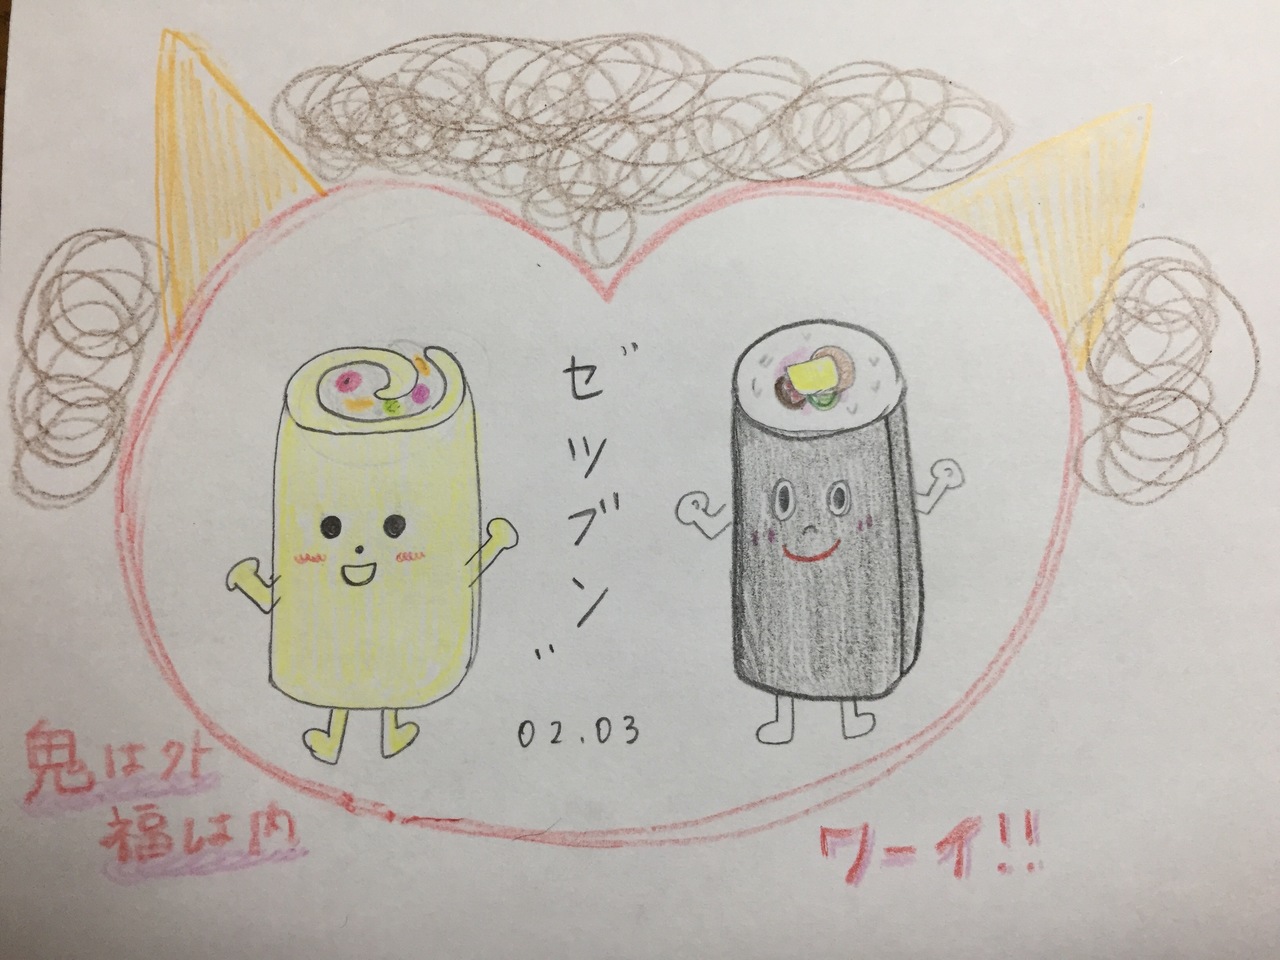 ゼツブン
02.03
鬼は外
福は内
ワーイ!!